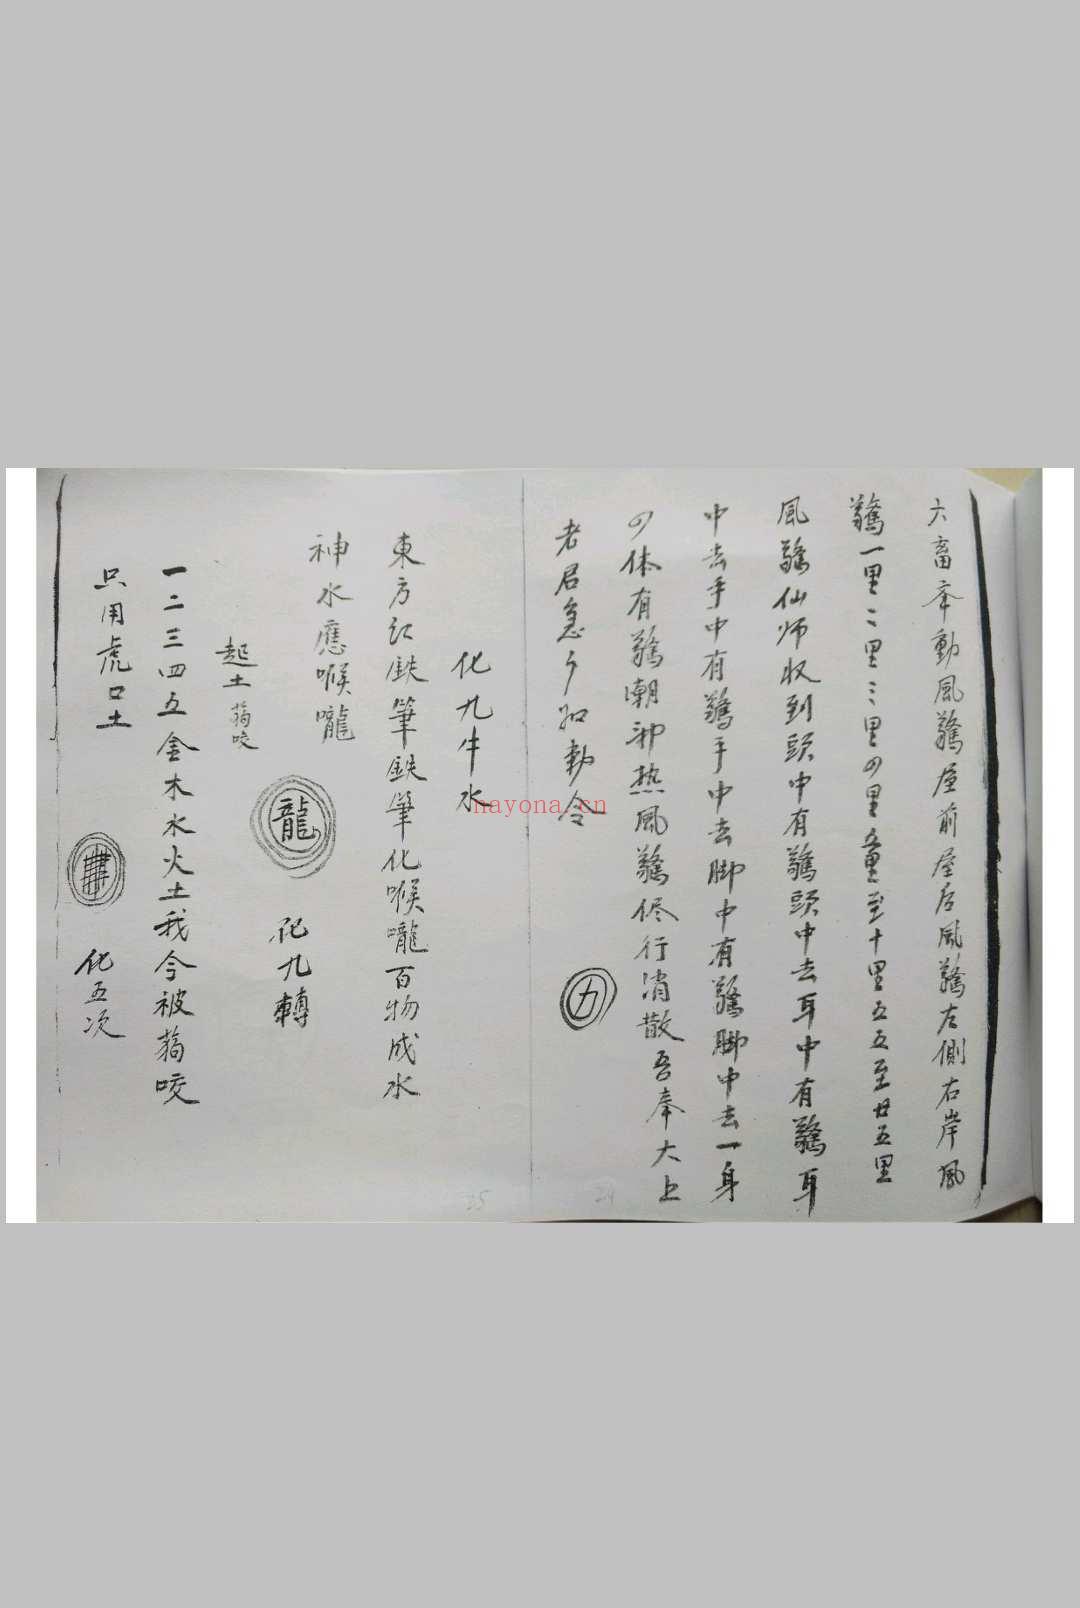 六畜牽動風驚屋前屋后風驚左側右岸風
驚一里二里三里四里童至十里五五至廿五里
風驚仙师收到頭中有驚頭中去耳中有驚耳
中去手中有驚手中去脚中有驚脚中去一身
四体有驚潮邪热風驚侭行消散吾奉大上
老君急々如勅令
力
24
化九牛水
東方红鉄筆鉄筆化喉嚨百物成水
神水應喉嚨
龍
化九轉
起土蒟咬
一二三四五金木水火土我今被蒟咬
只用虎口土
化五次
25
nayona.cn